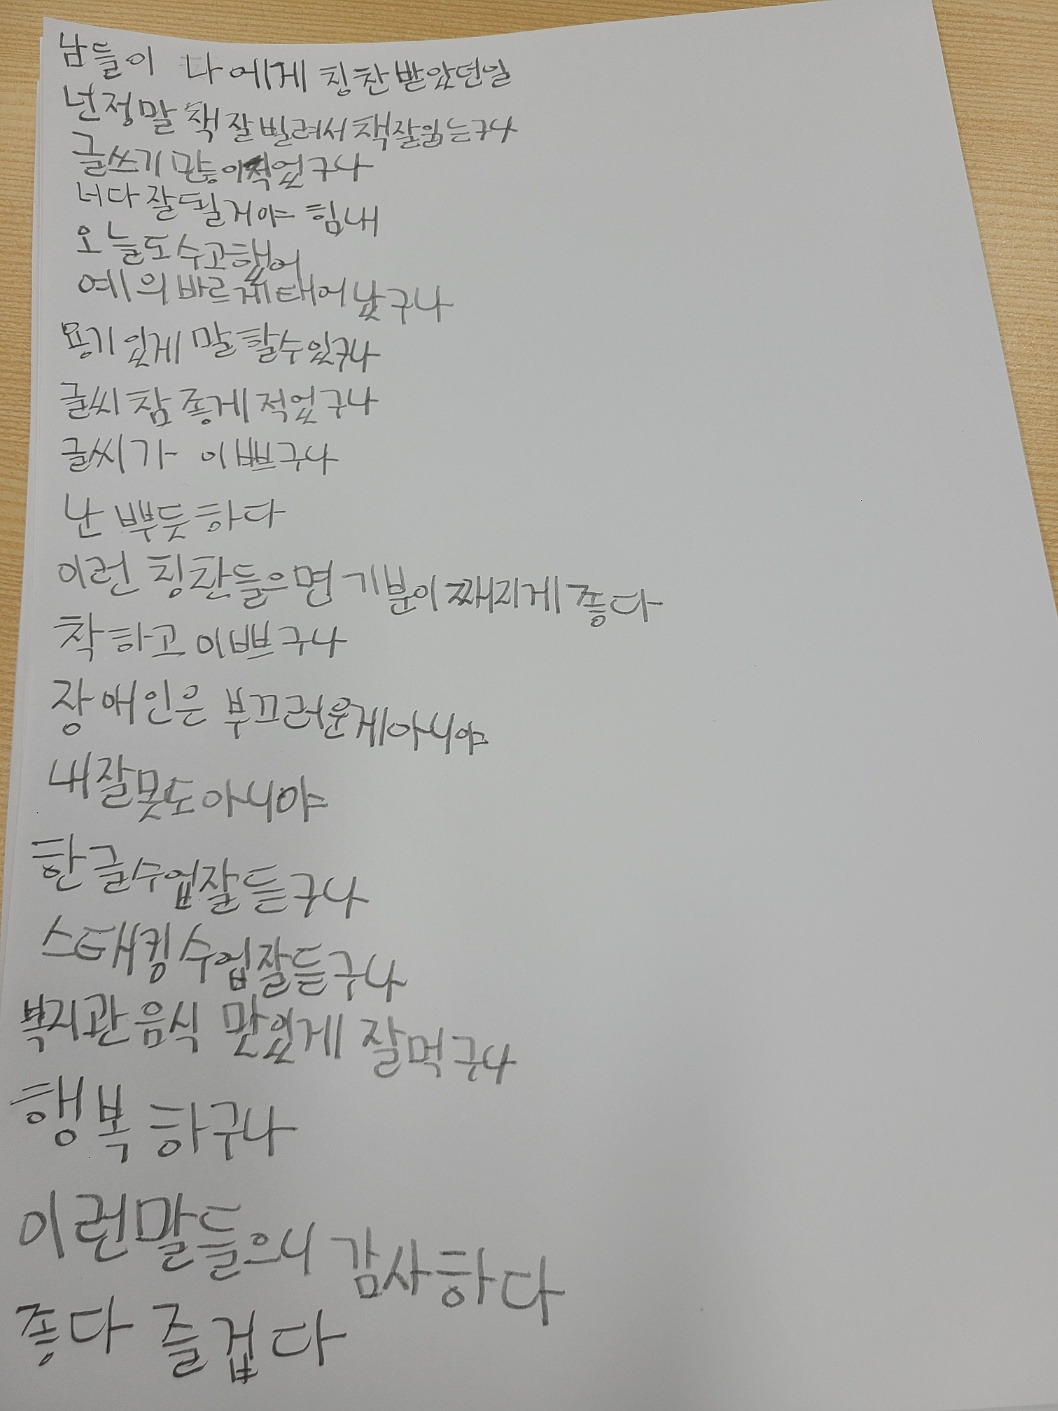 남들이 나에게 칭찬받았던일
넌정말 책잘빌려서책잘읽는구나
글쓰기많이적었구나
너다잘될거야 힘내
오늘도수고했어
예의바르게태어났구나
용기있게말할수있구나
글씨참좋게적었구나
글씨가 이쁘구나
난 뿌듯하다
이런 칭찬들으면기분이째지게좋다
착하고이쁘구나
장애인은 부끄러운게아니야
내잘못도아니야
한글수업잘듣구나
스태킹수업잘듣구나
복지관음식 맛있게 잘먹구나
행복 하구나
이런말들으니 감사하다
좋다 즐겁다